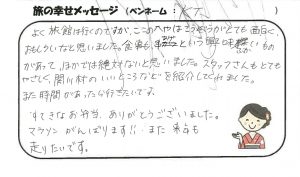 旅の幸せメッセージ (ペンネーム : K.T )
よく旅館は行くのですが、ここのへやはこうぞうがとても面白く、
おもしろいなと思いました。食事も
があって、ほかでは絶対ないと思いました。スタッフさんもとても
やさしく、関ヶ村のいいところなどを紹介してくれました。
また時間があったら行きたいです。
すてきなお弁当、ありがとうございました。
マラソンがんばります!! また来年も
走りたいです。